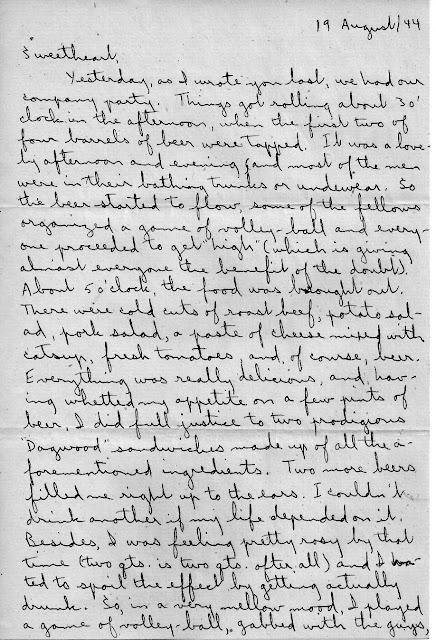 19 August/44
Sweetheart,
Yesterday, as I wrote you last, we had our
company party. Things got rolling about 3 o'
clock in the afternoon, when the first two of
four barrels of beer were tapped. It was a love-
ly afternoon and evening, and most of the men
were in their bathing trunks or underwear. So
the beer started to flow, some of the fellows
organized a game of volley-ball and every-
one proceeded to get "high" (which is giving
almost everyone the benefit of the doubt).
About 5 o'clock, the food was brought out.
There were cold cuts of roast beef, potato sal-
ad, pork salad, a paste of cheese mixed with
catsup, fresh tomatoes, and, of course, beer.
Everything was really delicious, and, hav-
ing whetted my appetite on a few pints of
beer, I did full justice to two prodigious
"Dagwood" sandwiches made up of all the a-
forementioned ingredients. Two more beers
filled me right up to the ears. I couldn't
drink another if my life depended on it.
Besides, I was feeling pretty rosy by that
time (two qts. is two qts. after all) and I ha-
ted to spoil the effect by getting actually
drunk. So, in a very mellow mood, I played
a game of volley-ball, gabbed with the guys,